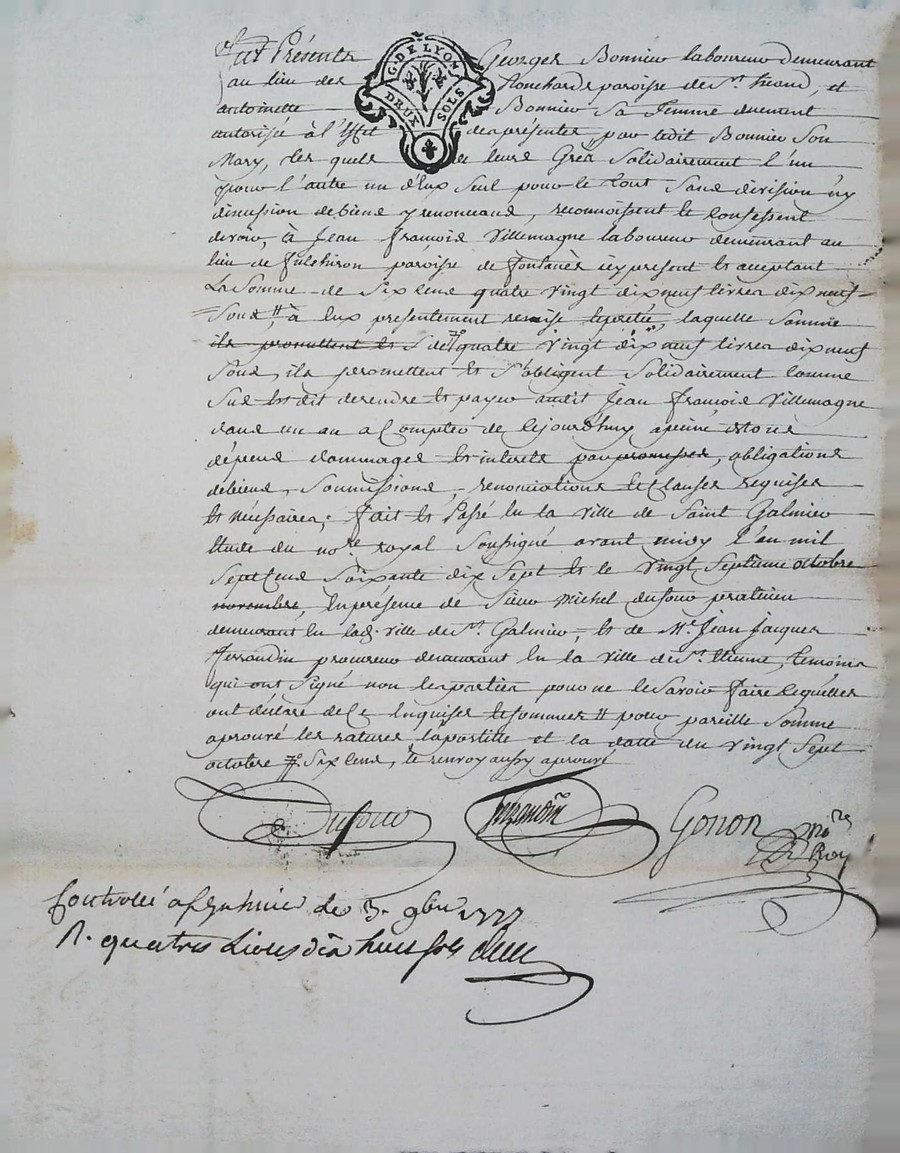 Fut Présents Georges Bonnier laboureur demeurant
au lieu des Ronchards paroisse de St. heand, et
antoinette Bonnier Sa Femme duement
autorisée à l'Effet des présentes par ledit Bonnier Son
Mary, les quels de leurs Grés Solidairement l'un
pour l'autre un d'Eux Seul pour le tout Sans division ny
discussion de biens y renonceans, reconnoissent et confessent
devoir, à Jean François Villemagne laboureur demeurant au
lieu de fulchiron paroisse de fontanès icy present et acceptant
La Somme de Six Cens quatre Vingt dix neuf livres dix neuf
Sous, à Eux presentement laquelle Somme
ils promettent et de quatre Vingt dix neuf livres dix neuf
Sous, ils promettent et S'obligent Solidairement Comme
Sus Est dit de rendre et payer audit Jean François Villemagne
dans un an a Compter de Cejourdhuy apeine de tous
dépens dommages et interets par promesses, obligations
de biens, Soumissions, renonciations et Clauses requises
et nécessaires; fait et Passé En la Ville de Saint Galmier
Etude du nore. royal Soussigné avant midy l'an mil
Sept Cens Soixante dix Sept et le Vingt Septième octobre
novembre, En présence de Sieur Michel dufour praticien
demeurant En lad. ville de St. Galmier, et de Me. Jean Jacques
ferrandin procureur demeurant En la Ville de St. Etienne, temoins
qui ont Signé non les parties pour ne le Savoir faire lequelles
ont déclaré de Ce Enquises et Sommées # pour pareille Somme
aprouvé les ratures l'apostille et la datte du Vingt Sept
octobre Six Cens, le renvoy aussy aprouvé
G. DE LYON
DEUX SOLS
Dufour ferrandin Gonon Nore Roy
Controllé a St galmier le 3. 9bre 1777
R. quatres Livres dix huit sols